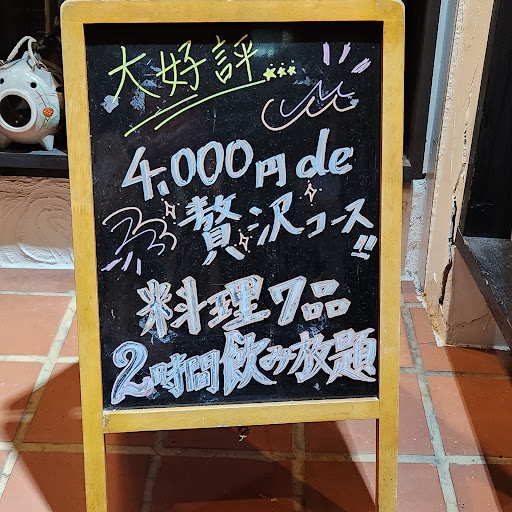 大好評...
4,000円de
贅沢コース!!
料理7品
2時間飲み放題